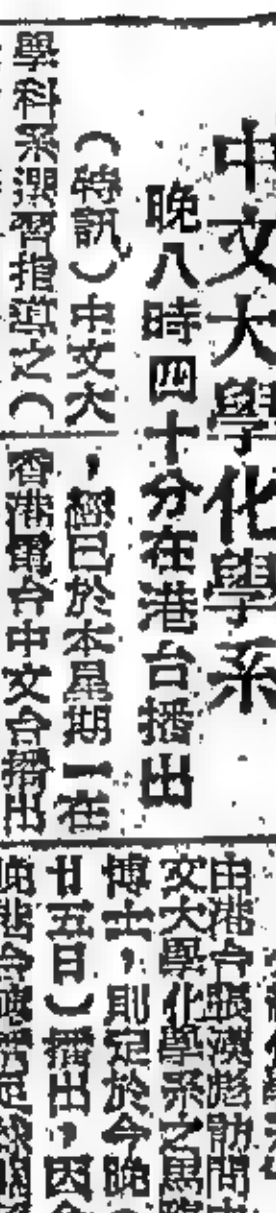 中文大學化學系
晚八時四十分在港台播出
（特訊）中文大
學科系選習指導之（
，經已於本星期一在
香港電台中文台播出
由港台張漢彪訪問中
文大學化學系之馬臨
博士，則定於今晚（
廿五日）播出，因今